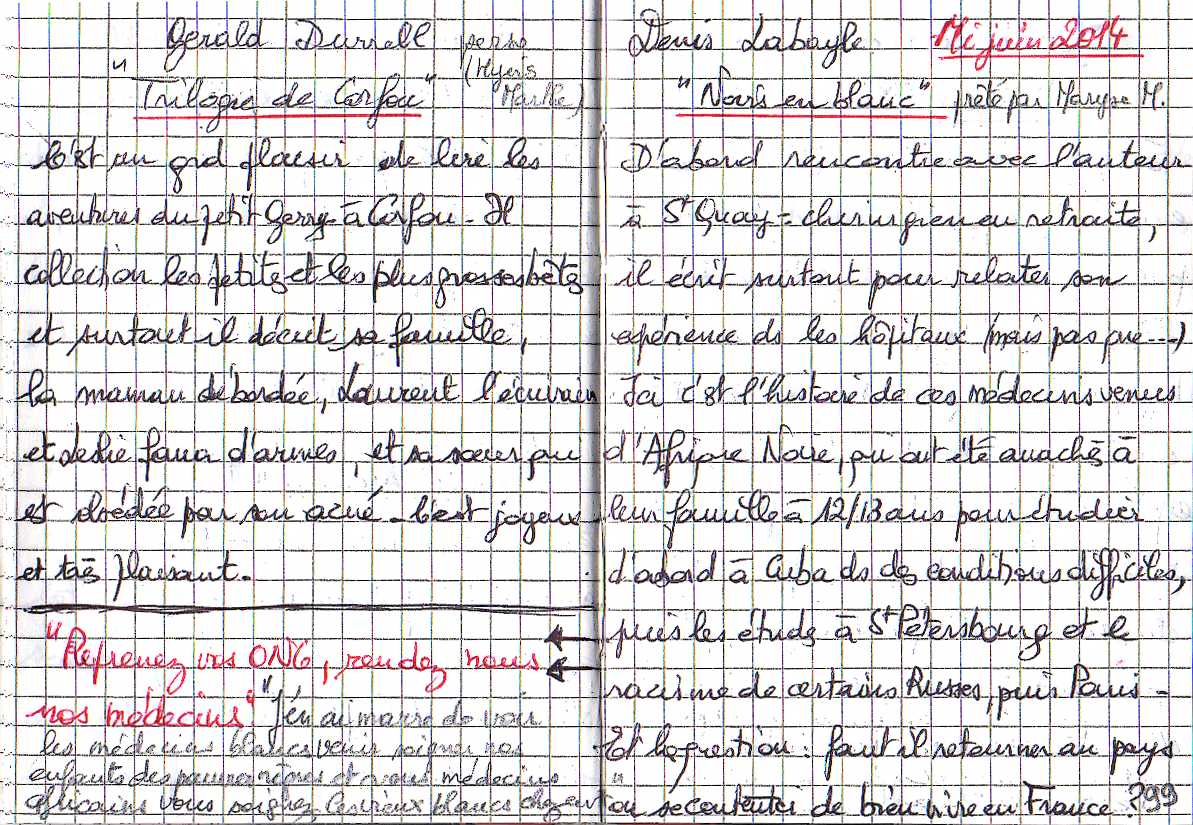 Gerald Durrell perso
(Hyères
"Trilogie de Corfou"
C'est un grd plaisir de lire les
aventures du petit Gerry à Corfou - Il
collection les petits et les plus grosses bêtes
et surtout il décrit sa famille,
la maman débordée, Laurent l'écrivain
et Leslie fana d'armes, et sa soeur qui
est obsédée par son acné - C'est joyeux
et très plaisant.
"Reprenez vos ONG, rendez nous
nos médecins" "J'en ai marre de voir
les médecins blancs venir soigner nos
enfants des pauvres et vous médecins
africains vous soignez les vieux blancs chez eux"
Denis Labayle Mi juin 2014
"Noirs en blanc" prêté par Maryse M.
D'abord rencontre avec l'auteur
à St Quay = chirurgien en retraite,
il écrit surtout pour relater son
expérience ds les hôpitaux (mais pas que ---)
Ici c'est l'histoire de ces médecins venus
d'Afrique Noire, qui ont été arrachés à
leur famille à 12/13 ans pour étudier
d'abord à Cuba ds des conditions difficiles,
puis les études à St Petersbourg et le
racisme de certains Russes, puis Paris -
Et la question : faut il retourner au pays
ou se contenter de bien vivre en France ? 99